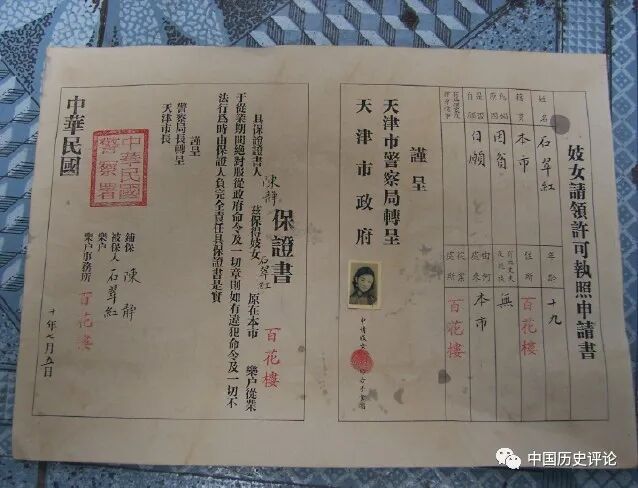 妓女請領許可執照申請書
姓名 石翠紅 年齡 十九
籍貫 本市 住所 百花樓
為娼原因 因貧 有無丈夫及親族 無
是否自願 自願 由何處來 本市
從業處所 百花樓
謹呈
天津市警察局轉呈
天津市政府
保證書
具保證書人 陳靜 茲保得妓女 石翠紅 原在本市 百花樓 樂户從業
于從業期間絕對服從政府命令及一切章則如有違犯命令及一切不
法行為時由保證人負完全責任具保證書是實
謹呈
警察局長轉呈
天津市長
鋪保 陳靜
被保人 石翠紅
樂户
樂户事務所 百花樓
中華民國
警察署
中華民國 十年七月五日
中国历史评论